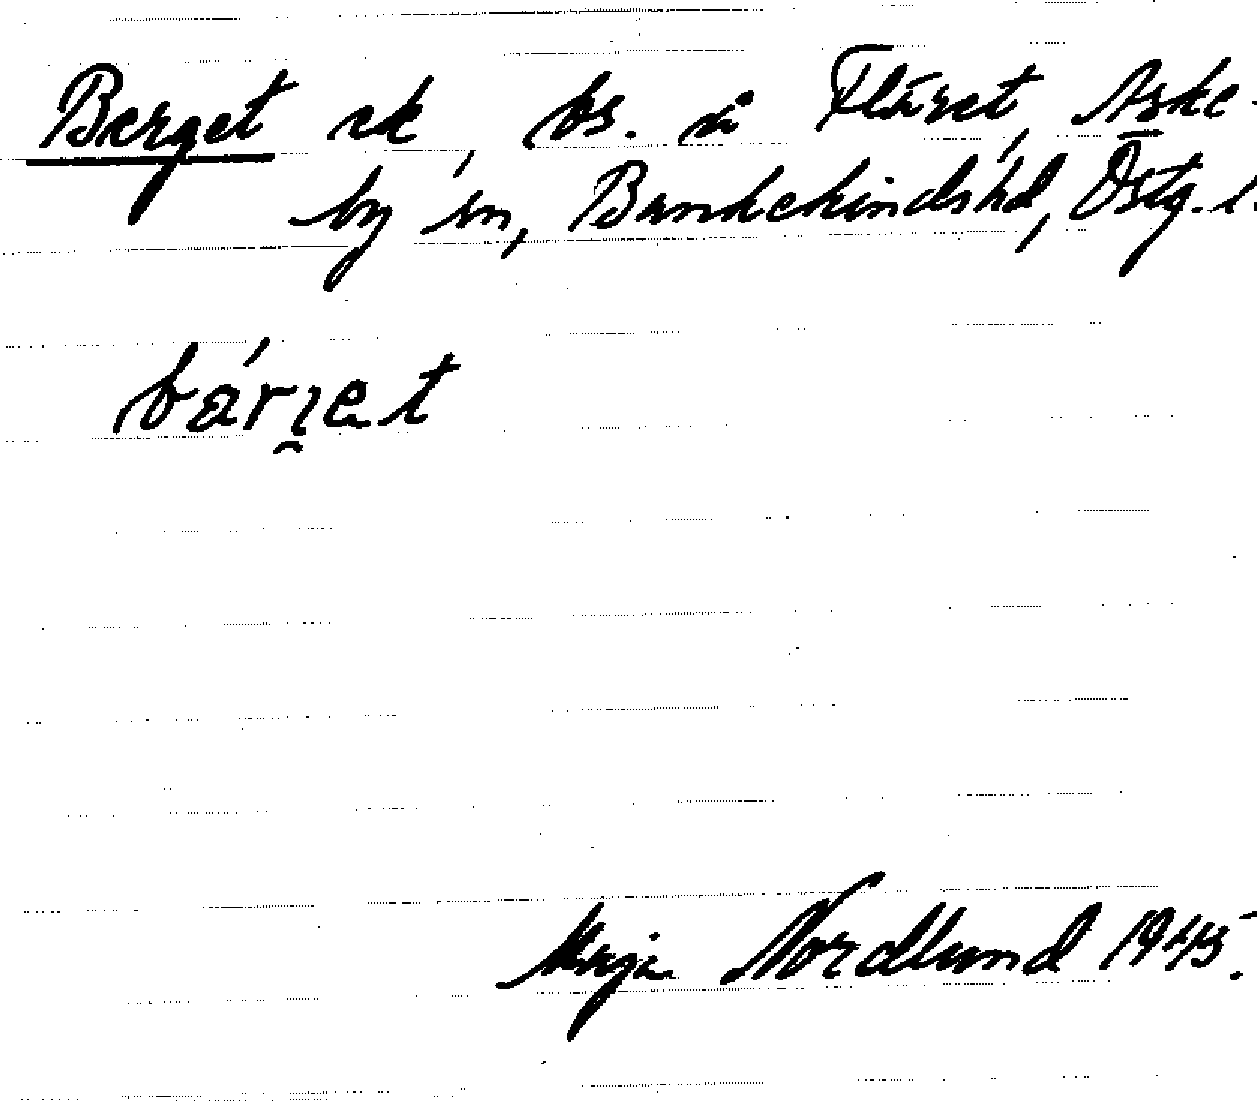 Berget ek, bs. å Fläret, Aske-
by sn, Bankekindshd, Östg. l.
bárjet
Maja Nordlund 1945.